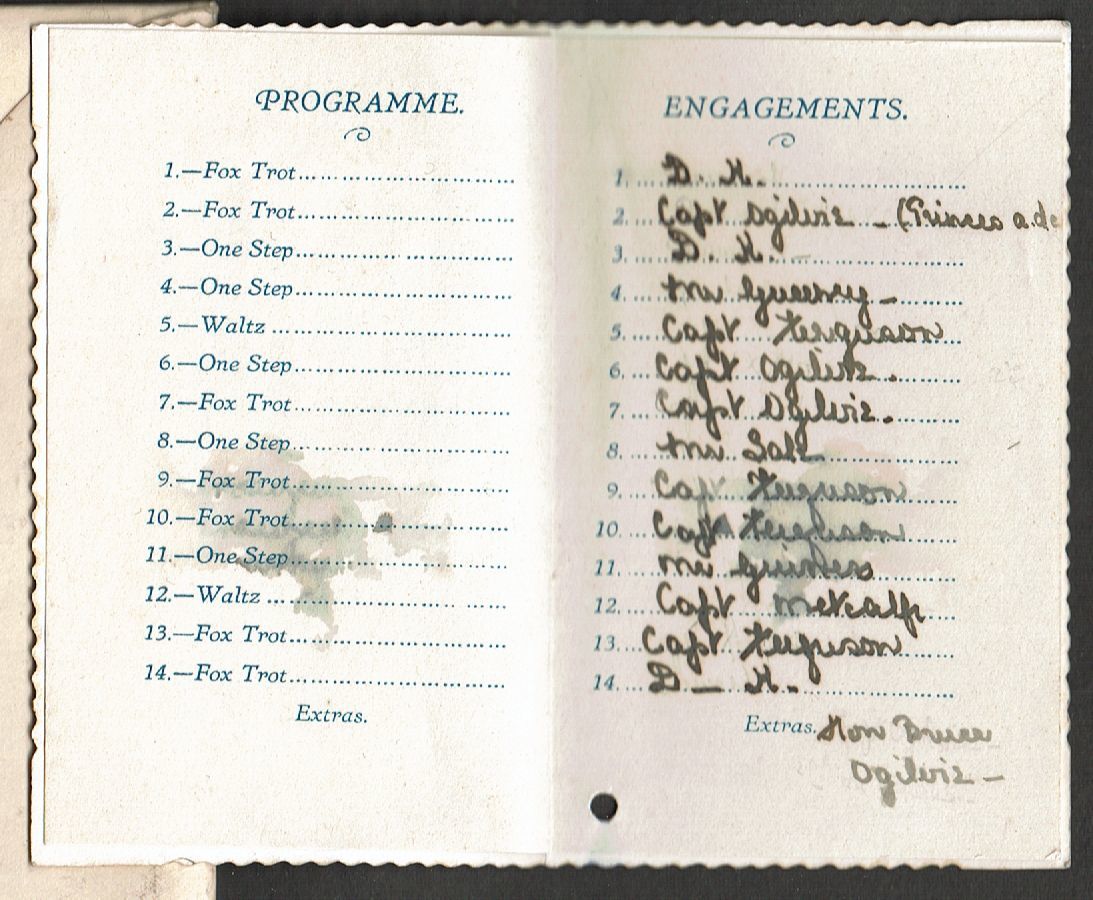 PROGRAMME.
1.—Fox Trot
2.—Fox Trot
3.—One Step
4.—One Step
5.—Waltz
6.—One Step
7.—Fox Trot
8.—One Step
9.—Fox Trot
10.—Fox Trot
11.—One Step
12.—Waltz
13.—Fox Trot
14.—Fox Trot
Extras.
ENGAGEMENTS.
1. D. H.
2. Capt Ogilvie – (Princes a.de
3. D. H.
4. Mr
5. Capt Ferguson
6. Capt Ogilvie.
7. Capt Ogilvie.
8. Mr
9. Capt Ferguson
10. Capt Ferguson
11. Mr Guiness
12. Capt Metcalfe
13. Capt Ferguson
14. D – H.
Extras. Hon Bruce
Ogilvie –